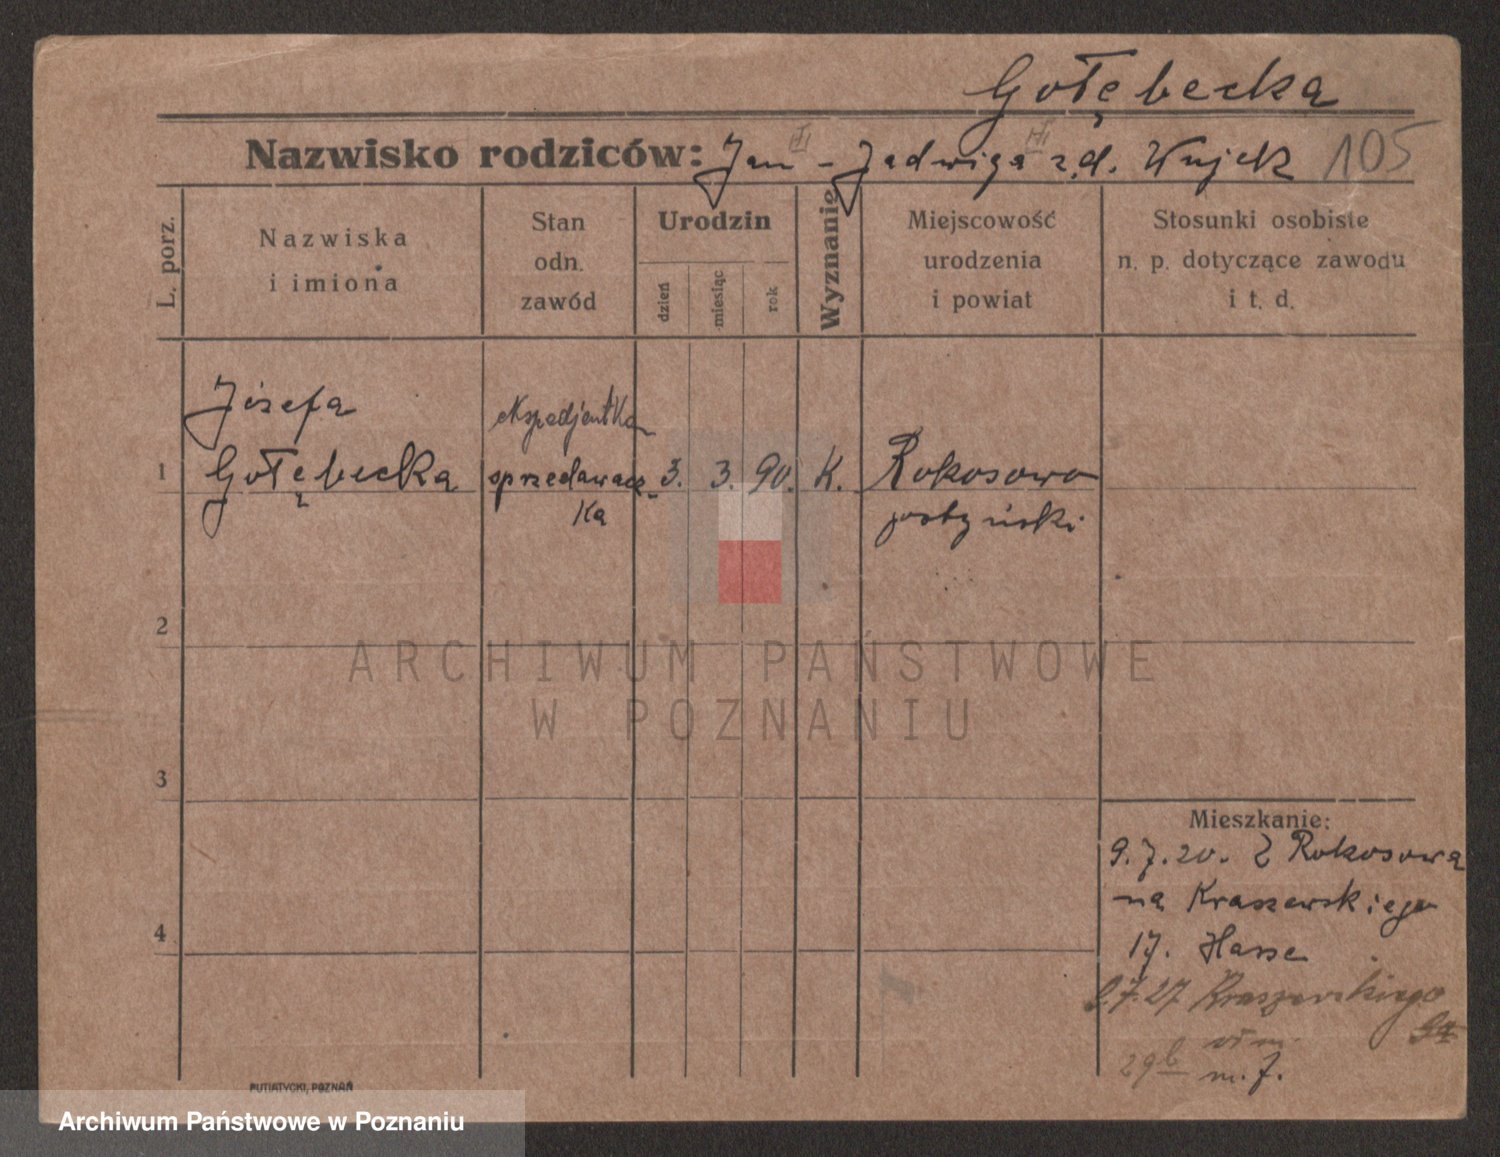 Gołębecka
Nazwisko rodziców: Jan - Jadwiga z d. Wujek 105
L. porz.
Nazwiska
i imiona
Stan
odn.
zawód
Urodzin
dzień
miesiąc
rok
Wyznanie
Miejscowość
urodzenia
i powiat
Stosunki osobiste
n. p. dotyczące zawodu
i t. d.
1
Józefa
Gołębecka
ekspedjentka
sprzedawacz-
ka
3. 3. 90. K.
Rokosowo
gostyński
2
ARCHIWUM PAŃSTWOWE
W POZNANIU
3
4
Mieszkanie:
9.7.20. Z Rokosowa
na Kraszewskiego
17. Hasse
2.7.27 Kraszewskiego
29b
m. 7.
PUTIATYCKI, POZNAŃ
Archiwum Państwowe w Poznaniu